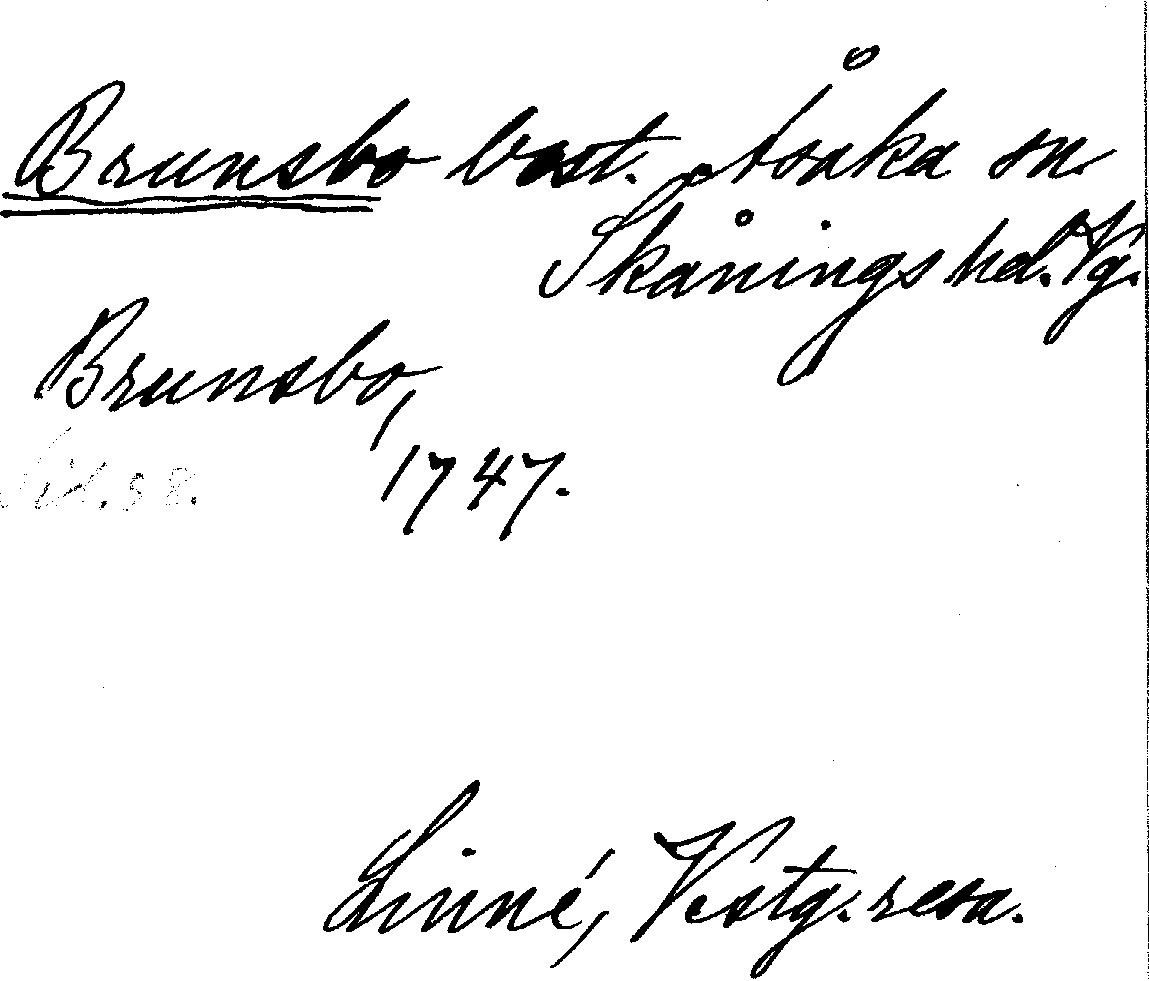 Brunsbo bost. Åsaka sn.
Skånings hd. Vg.
Brunsbo,
1747.
Sid. 58.
Linné, Vestg. resa.